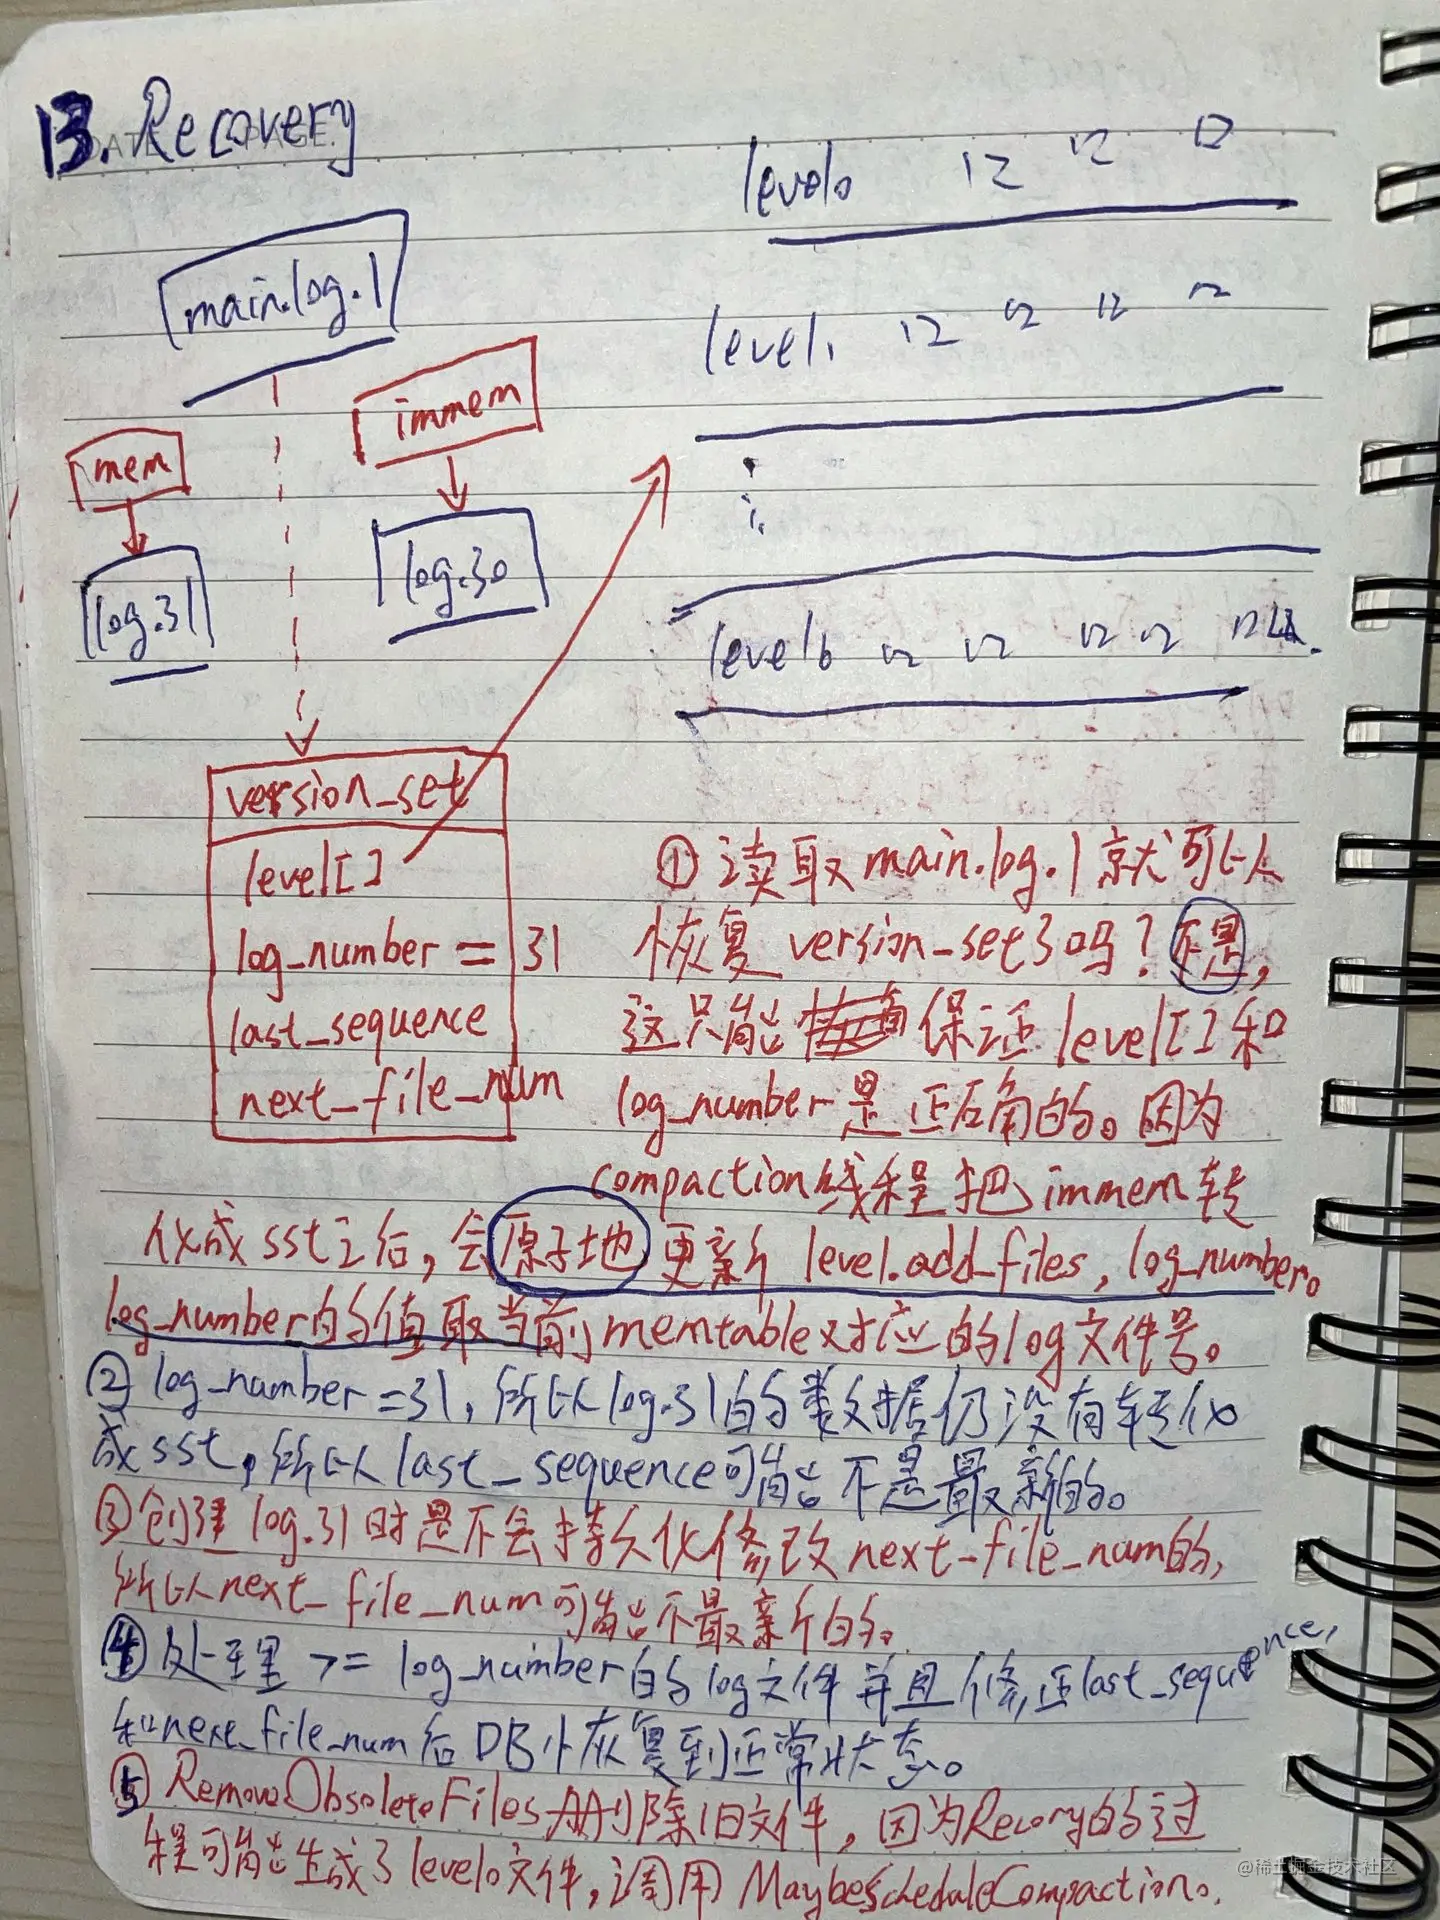 13. Recovery
level0
main.log.1
level1
immem
mem
log.30
log.31
level6
version_set
level[]
log_number = 31
last_sequence
next_file_num
① 读取 main.log.1 就可以
恢复 version_set 了吗？不是，
这只能 保证 level[] 和
log_number 是正确的。因为
compaction线程把 immem 转
化成 sst 之后，会原子地 更新 level.add_files, log_number。
log_number的值取当前memtable对应的log文件号。
② log_number =31, 所以log.31的数据仍没有转化
成sst，所以last_sequence可能不是最新的。
③ 创建 log.31时是不会持久化修改next_file_num的，
所以next_file_num可能不最新的。
④ 处理 >= log_number的log文件并且修正last_sequence,
和next_file_num后DB恢复到正常状态。
⑤ RemoveObsoleteFiles 删除旧文件，因为Recory的过
程可能生成了level0文件，调用MaybescheduleCompaction。
@稀土掘金技术社区